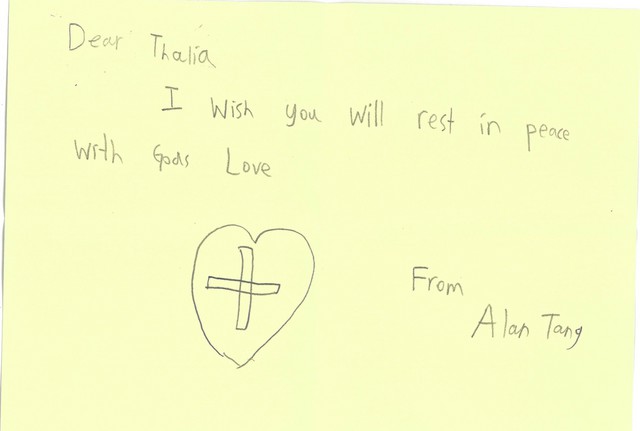 Dear Thalia
I wish you will rest in peace
with Gods Love
From
Alan Tang